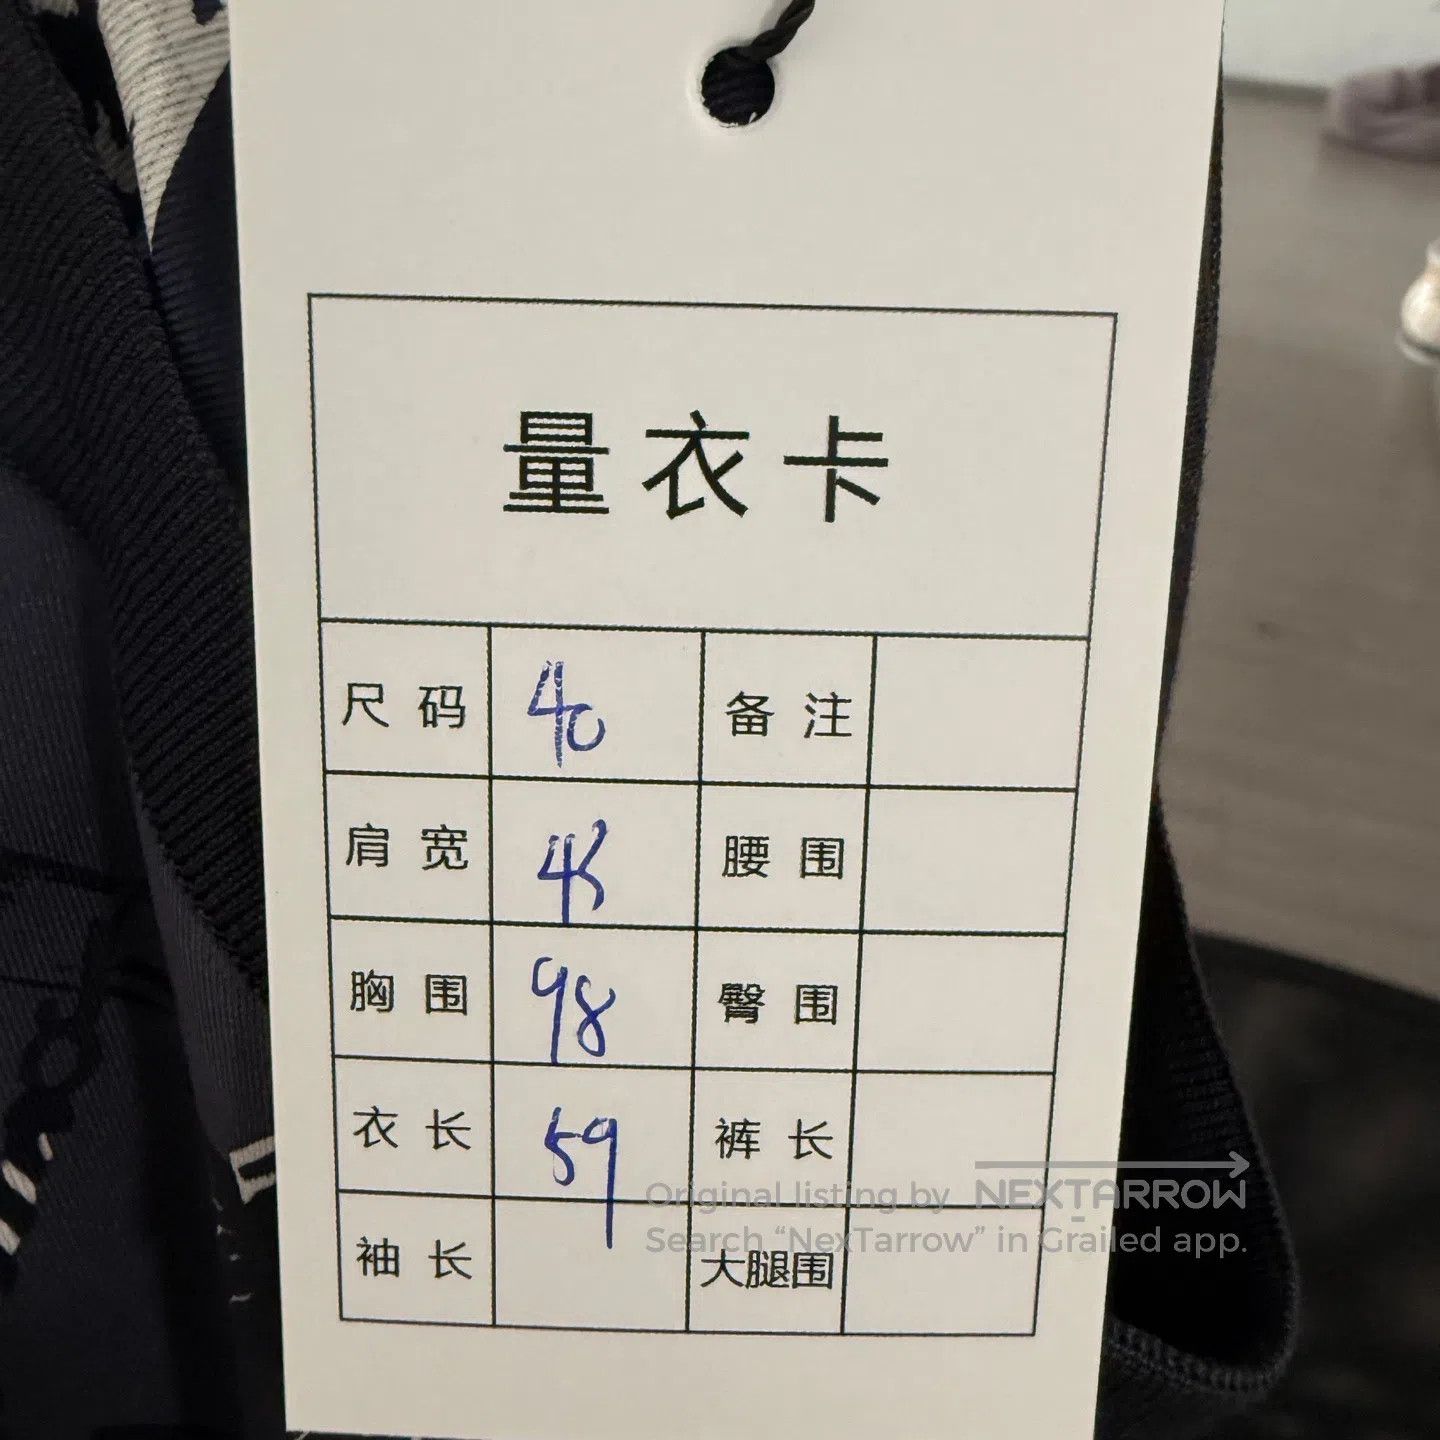 量衣卡
尺码 40 备注
肩宽 45 腰围
胸围 98 臀围
衣长 59 裤长
袖长 大腿围
Original listing by NEXTARROW
Search “NexTarrow” in Grailed app.